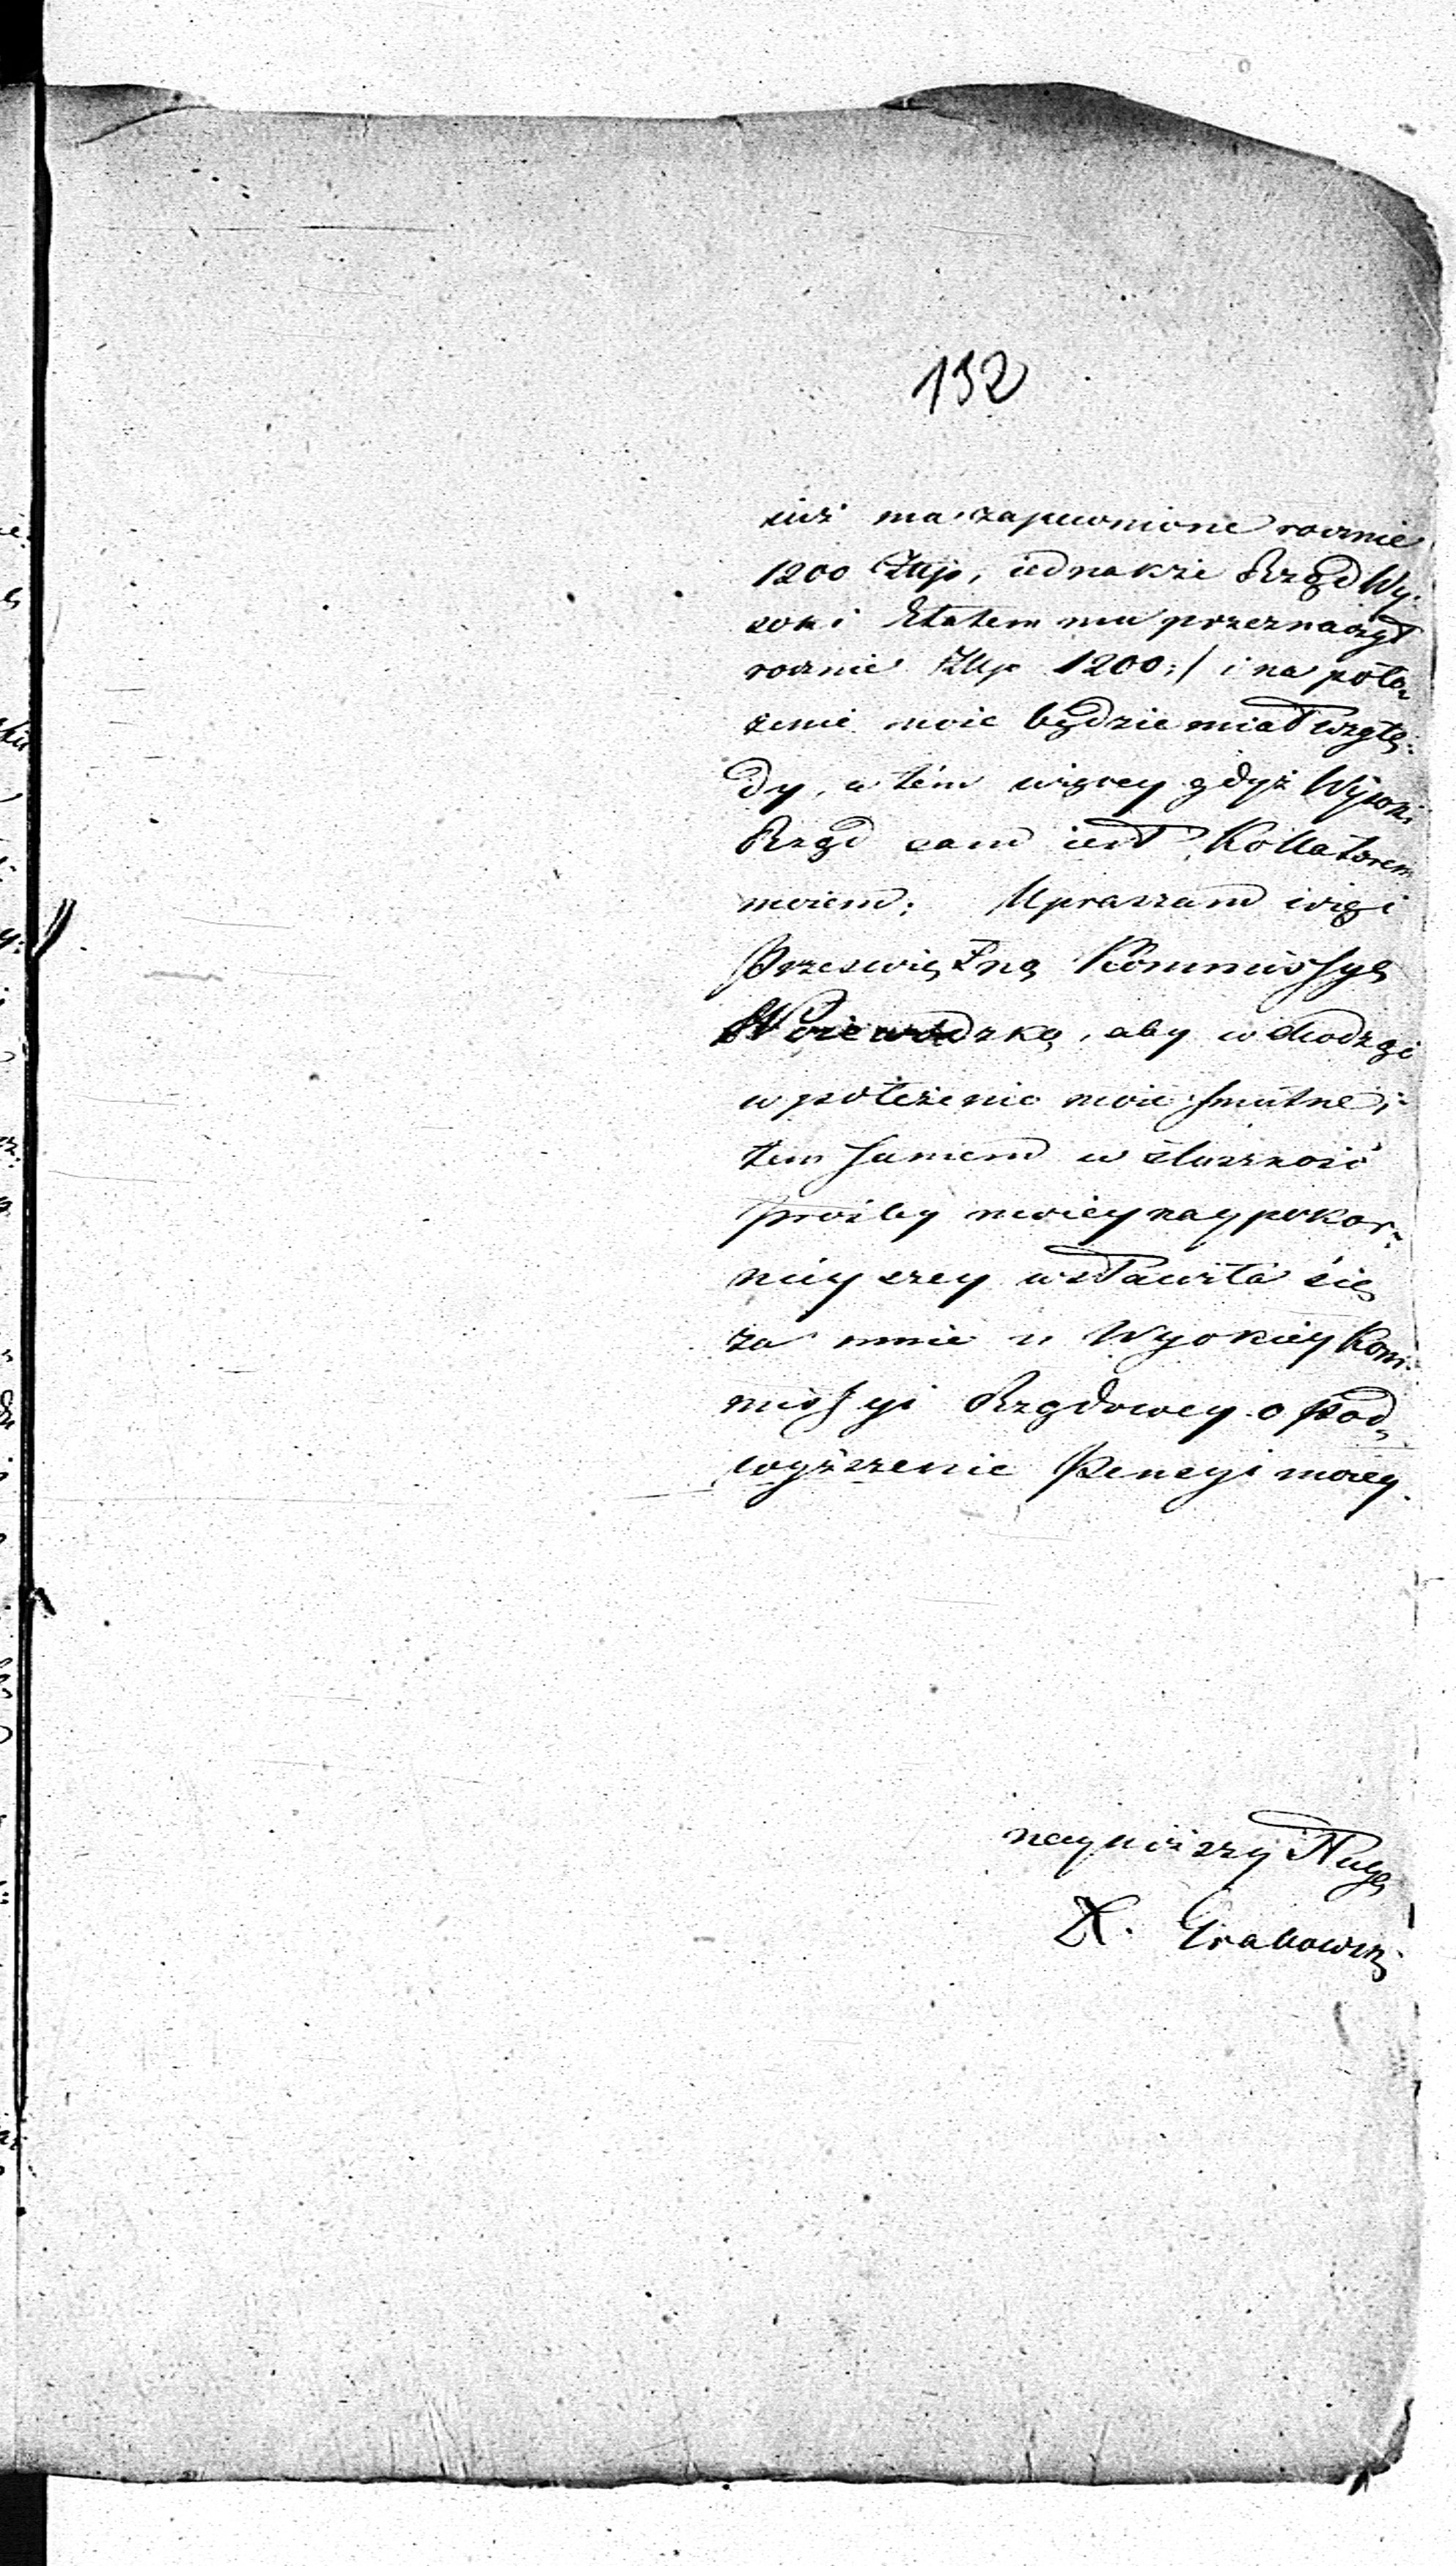 132
iuż ma zapewnione rocznie
1200 Złłp, iednakże Rząd Wy-
soki Etatem mu przeznaczył
rocznie Złłp 1200:/ i na poło-
żenie moie będzie miał wzglę-
dy, a tém więcey gdyż Wysoki
Rząd sam iest Kollatorem
moiem; Upraszam więc
Prześwietną Kommissyę
Woiewódzką, aby wchodząc
w położenie moie smutne i
tem samem w słuszność
proźby moiey naypokor-
nieyszey wstawiła się
za mnie u Wysokiey Kom-
missyi Rządowey o pod-
wyższenie Pensyi moiey.
nayniższy Sługa
X. Grabowski